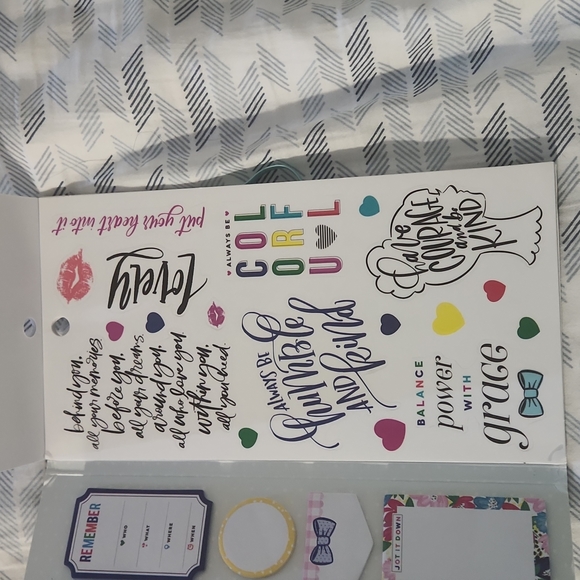 put your heart into it
Lovely
behind you,
all your memories
before you,
all your dreams.
around you,
all who love you.
within you,
all you need.
ALWAYS BE
COL
ORF
UL
ALWAYS BE
humble
AND
kind
have
COURAGE
and be
KIND
BALANCE
power
WITH
grace
REMEMBER
WHO
WHAT
WHERE
WHEN
JOT IT DOWN